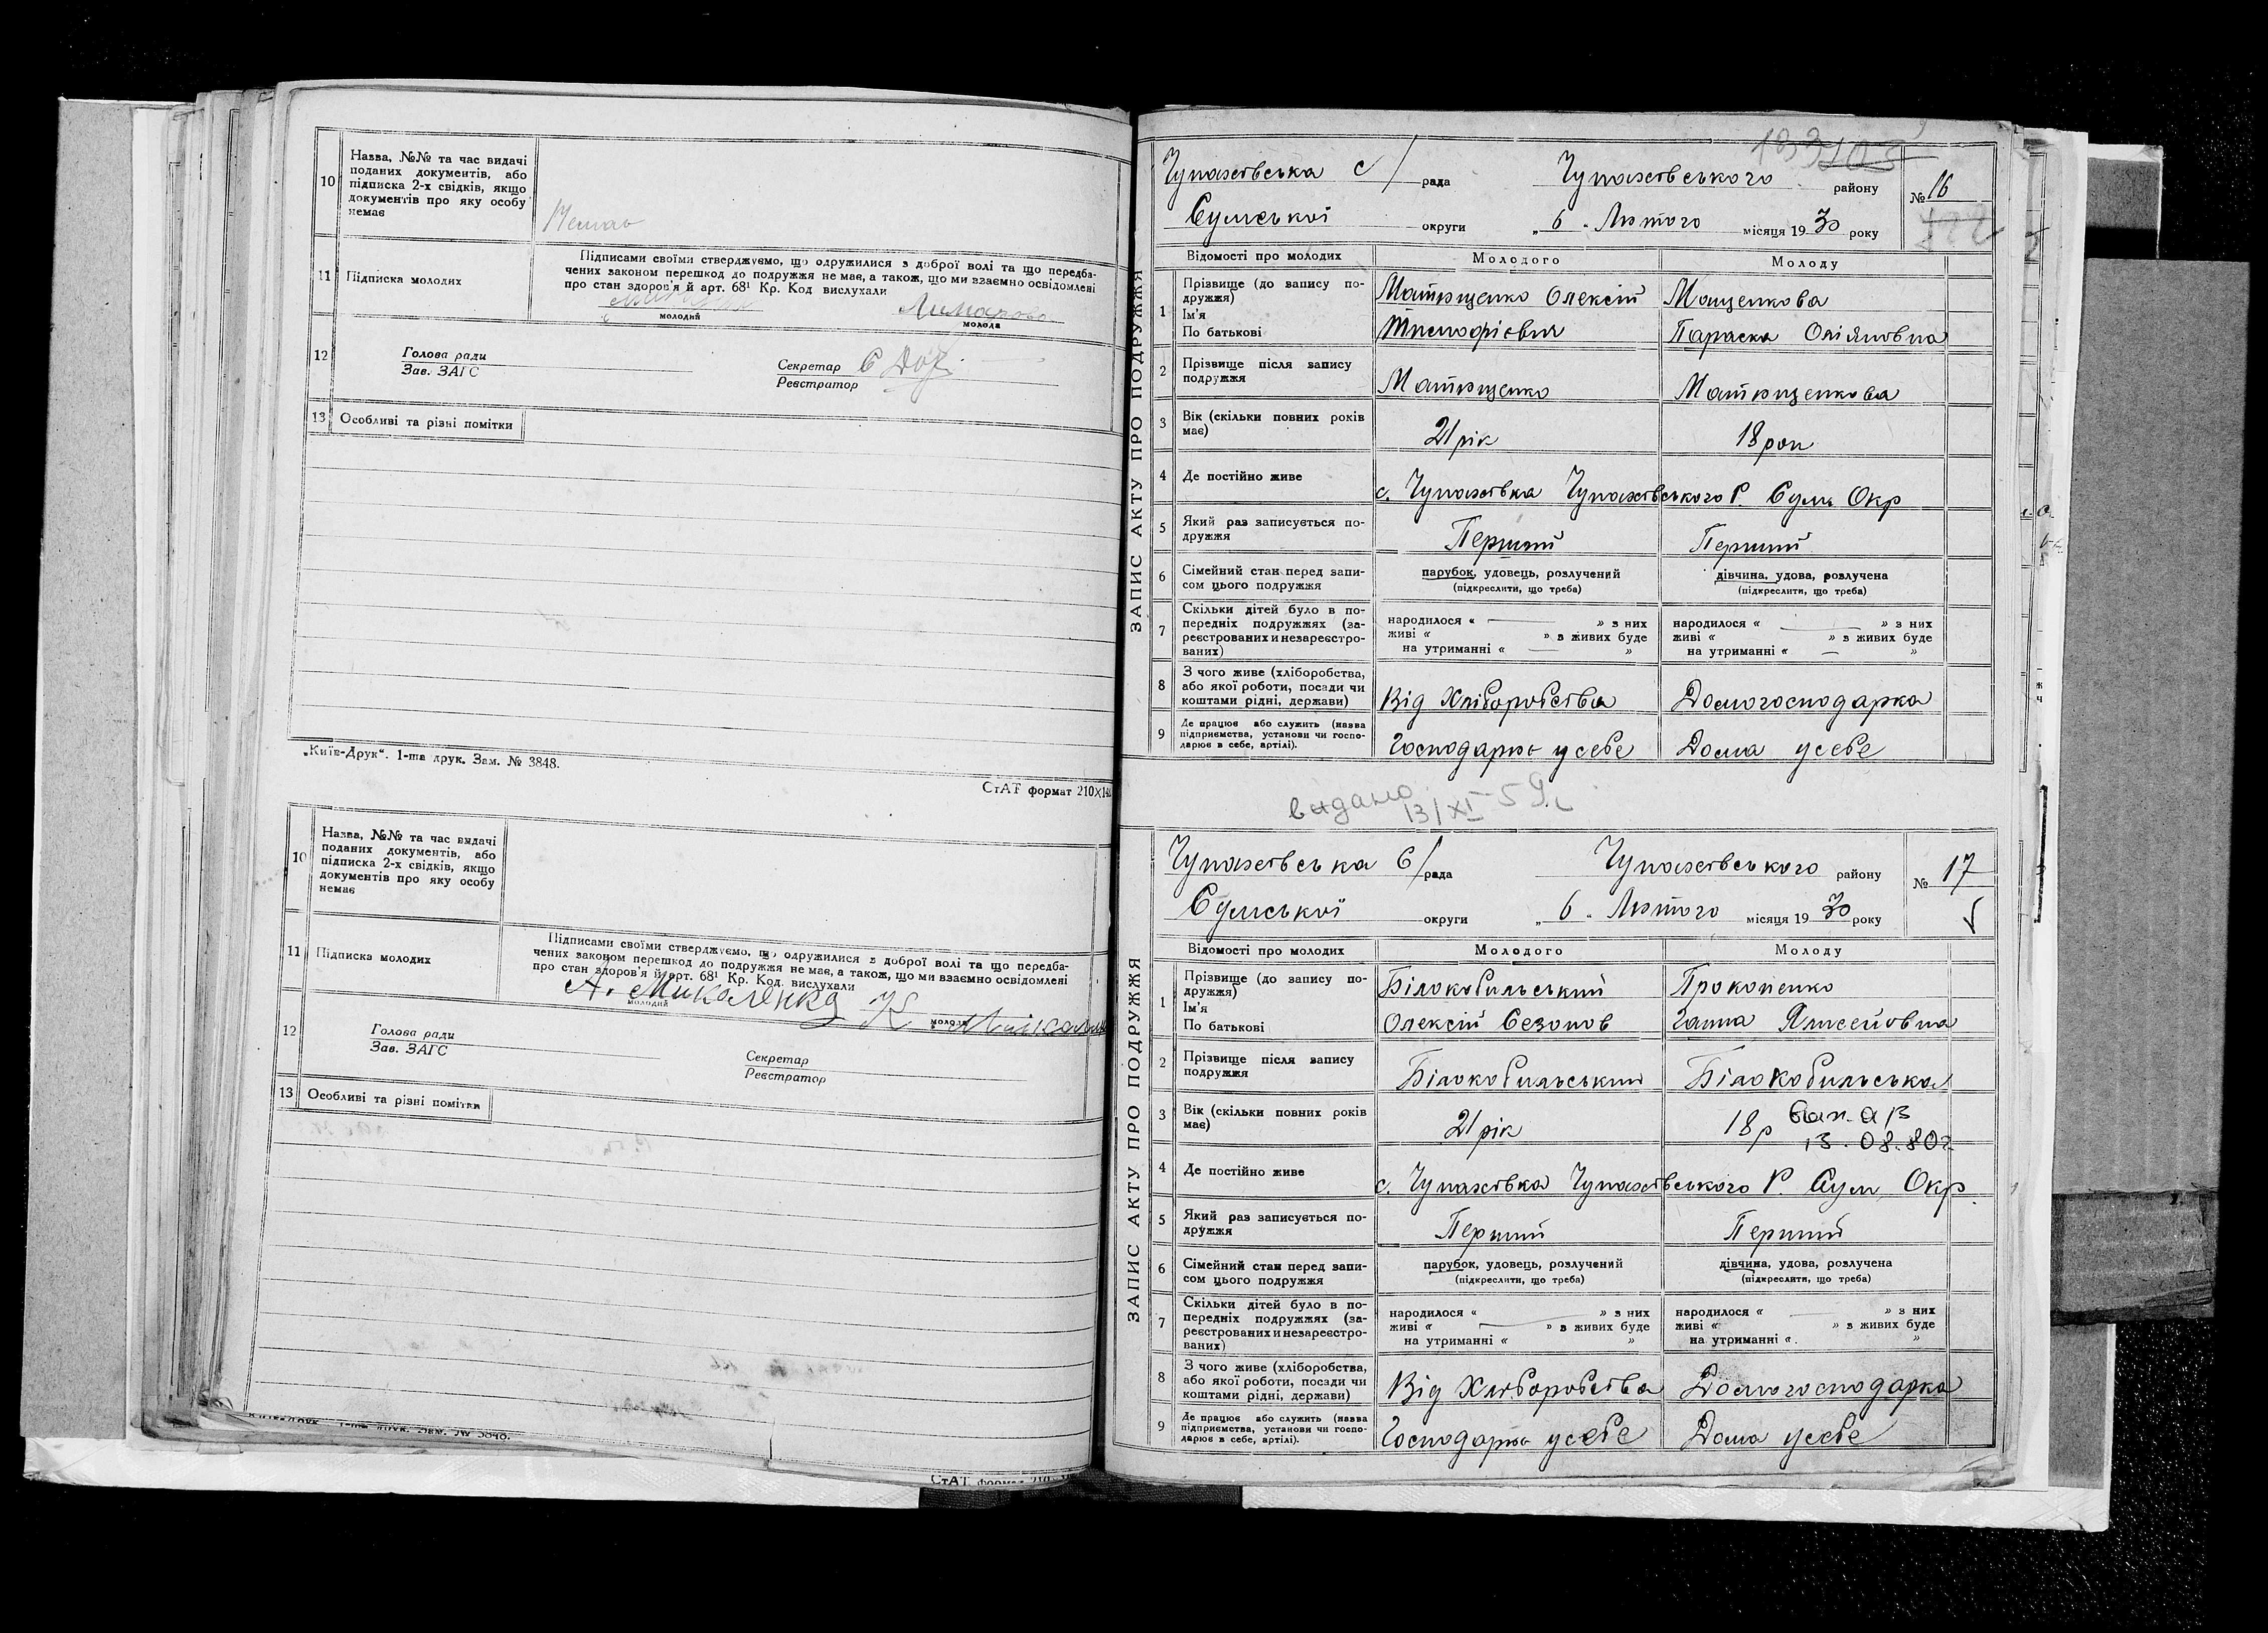 10 Назва, №№ та час видачі
поданих документів, або
підписка 2-х свідків, якщо
документів про яку особу
немає
11 Підписка молодих
Підписами своїми стверджуємо, що одружилися з доброї волі та що передба-
чених законом перешкод до подружжя не має, а також, що ми взаємно освідомлені
про стан здоров'я й арт. 68¹ Кр. Код вислухали
молодий молода
12 Голова ради
Зав. ЗАГС
Секретар
Реєстратор
13 Особливі та різні помітки
„Київ-Друк“. 1-ша друк. Зам. № 3848.
СтАТ формат 210×14
10 Назва, №№ та час видачі
поданих документів, або
підписка 2-х свідків, якщо
документів про яку особу
немає
11 Підписка молодих
Підписами своїми стверджуємо, що одружилися з доброї волі та що передба-
чених законом перешкод до подружжя не має, а також, що ми взаємно освідомлені
про стан здоров'я й арт. 68¹ Кр. Код. вислухали
А. Микаленко
молодий молода
12 Голова ради
Зав. ЗАГС
Секретар
Реєстратор
13 Особливі та різні помітки
СтАТ формат
ЗАПИС АКТУ ПРО ПОДРУЖЖЯ
Чупахівська с/рада Чупахівського району № 16
Сумської округи „6“ Лютого місяця 1930 року
Відомості про молодих Молодого Молоду
1 Прізвище (до запису по-
дружжя)
Ім'я
По батькові
Матющенко Олексій
Тимофієвич
Мащенкова
Параска Оліяновна
2 Прізвище після запису
подружжя
Матющенко Матющенкова
3 Вік (скільки повних років
має)
21 рік 18 рок
4 Де постійно живе с. Чупахівка Чупахівського Р. Сум Окр
5 Який раз записується по-
дружжя
Перший Перший
6 Сімейний стан перед запи-
сом цього подружжя
парубок, удовець, розлучений
(підкреслити, що треба)
дівчина, удова, розлучена
(підкреслити, що треба)
7 Скільки дітей було в по-
передніх подружжях (за-
реєстрованих и незареєстро-
ваних)
народилося « » з них
живі « » в живих буде
на утриманні « »
народилося « » з них
живі « » в живих буде
на утриманні « »
8 З чого живе (хліборобства,
або якої роботи, посади чи
коштами рідні, держави)
Від Хліборобства Домогосподарка
9 Де працює або служить (назва
підприємства, установи чи госпо-
дарює в себе, артілі).
Господарює у себе Дома у себе
видано
13/XI-59
ЗАПИС АКТУ ПРО ПОДРУЖЖЯ
Чупахівська С/рада Чупахівського району № 17
Сумської округи „6“ Лютого місяця 1930 року
Відомості про молодих Молодого Молоду
1 Прізвище (до запису по-
дружжя)
Ім'я
По батькові
Білокобильський
Олексій Сезонов
Прокопенко
Ганна Ялисеївна
2 Прізвище після запису
подружжя
Білокобильський Білокобильська
3 Вік (скільки повних років
має)
21 рік 18 р
13.08.80г.
4 Де постійно живе с. Чупахівка Чупахівського Р. Сум Окр.
5 Який раз записується по-
дружжя
Перший Перший
6 Сімейний стан перед запи-
сом цього подружжя
парубок, удовець, розлучений
(підкреслити, що треба)
дівчина, удова, розлучена
(підкреслити, що треба)
7 Скільки дітей було в по-
передніх подружжях (за-
реєстрованих и незареєстро-
ваних)
народилося « » з них
живі « » в живих буде
на утриманні « »
народилося « » з них
живі « » в живих буде
на утриманні « »
8 З чого живе (хліборобства,
або якої роботи, посади чи
коштами рідні, держави)
Від Хліборобства Домогосподарка
9 Де працює або служить (назва
підприємства, установи чи госпо-
дарює в себе, артілі).
Господарює у себе Дома у себе